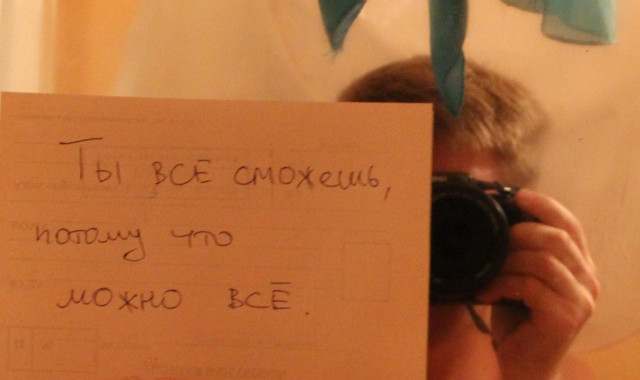 Ты всё сможешь,
потому что
можно всё.